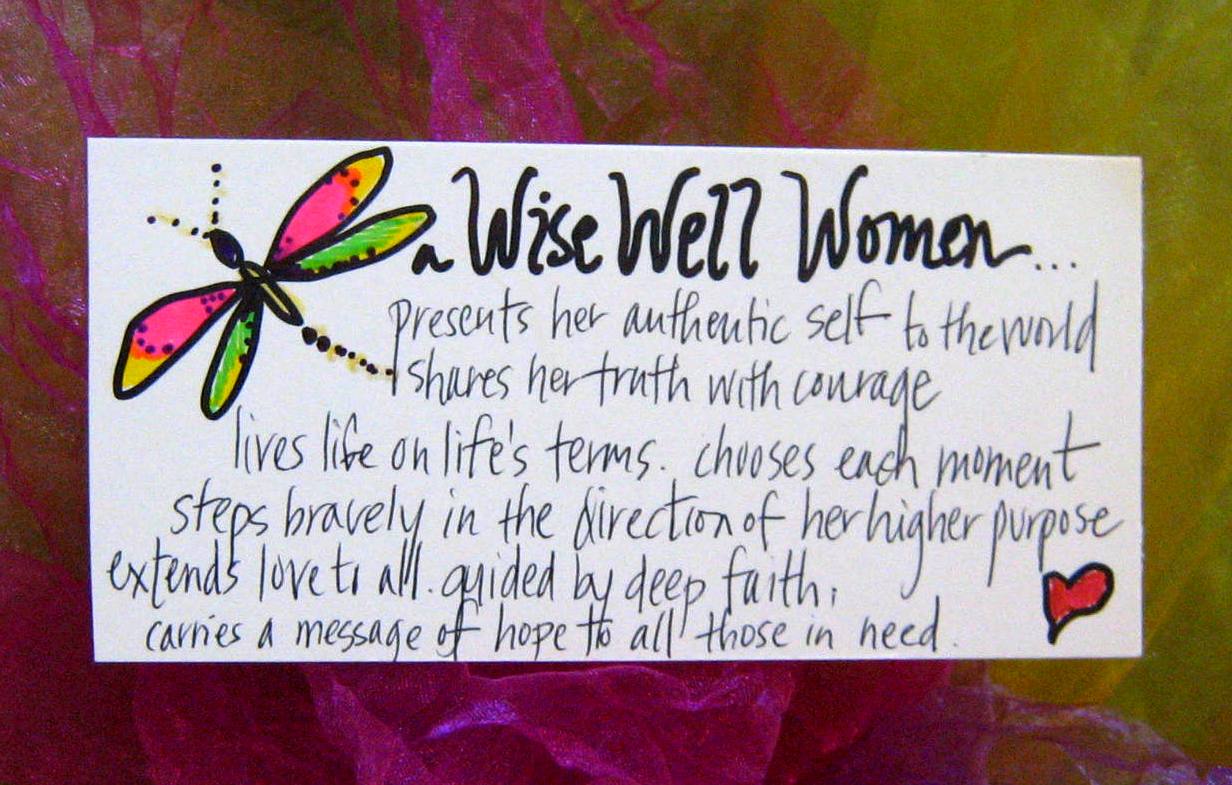 a Wise Well Women...
presents her authentic self to the world
shares her truth with courage
lives life on life's terms. chooses each moment
steps bravely in the direction of her higher purpose
extends love to all. guided by deep faith,
carries a message of hope to all those in need.